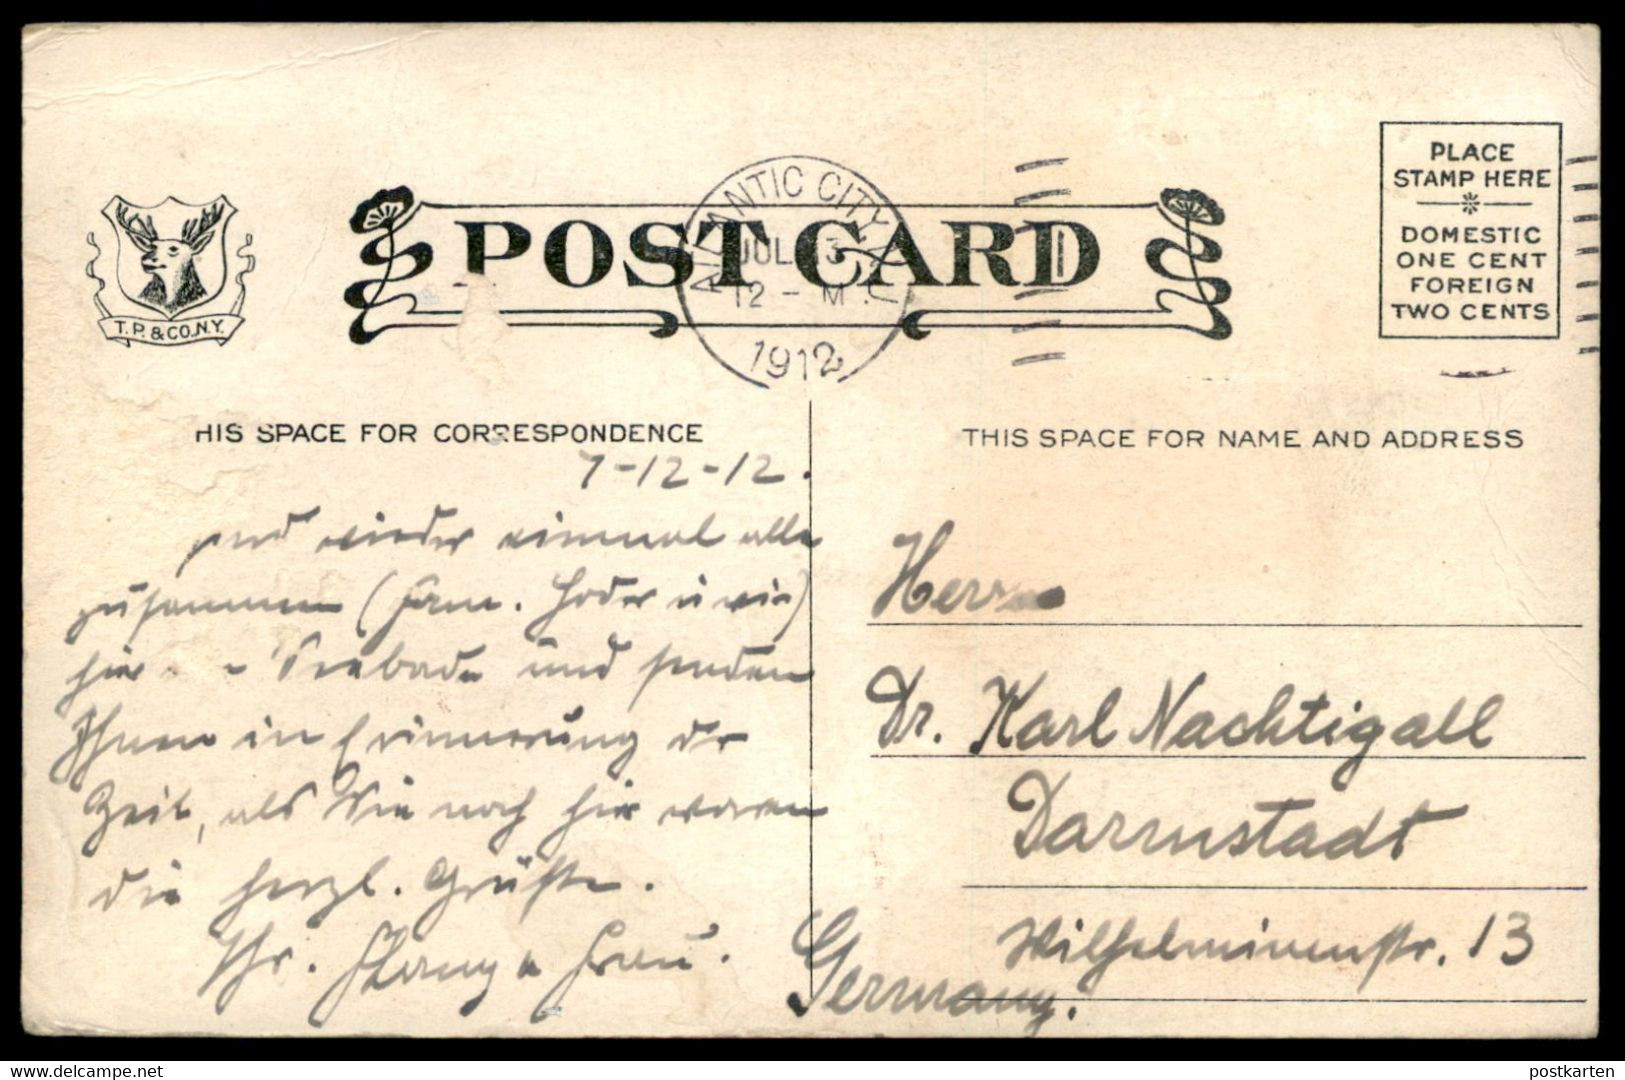 POST CARD
ATLANTIC CITY N.J.
JUL 13
12 - M
1912
T.P. & CO. N.Y.
PLACE
STAMP HERE
DOMESTIC
ONE CENT
FOREIGN
TWO CENTS
HIS SPACE FOR CORRESPONDENCE
7-12-12.
sind wieder einmal alle
zusammen (Fam. Hoder u wir)
hier Seebade und senden
Ihnen in Erinnerung der
Zeit, als Sie noch hier waren
die herzl. Grüße.
Ihr. u Frau.
THIS SPACE FOR NAME AND ADDRESS
Herrn
Dr. Karl Nachtigall
Darmstadt
Wilhelminenstr. 13
Germany.
delcampe.net
postkarten